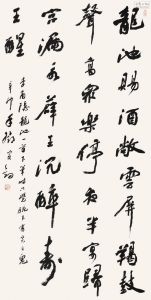 龍池賜酒敞雲屏羯鼓
聲高眾樂停夜半宴歸
宮漏永薛王沉醉壽
王醒
李商隱龍池一首